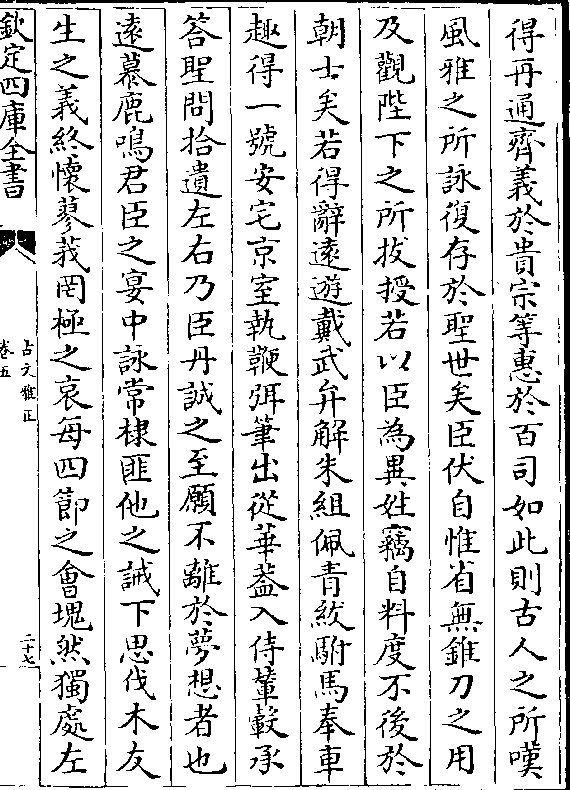 得再通齊義於貴宗等惠於百司如此則古人之所嘆
風雅之所詠復存於聖世矣臣伏自惟省無錐刀之用
及觀陛下之所拔授若以臣為異姓竊自料度不後於
朝士矣若得辭遠遊戴武弁解朱組佩青紱駙馬奉車
趣得一號安宅京室執鞭弭筆出從華葢入侍輦轂承
答聖問拾遺左右乃臣丹誠之至願不離於夢想者也
遠慕鹿鳴君臣之宴中詠常棣匪他之誡下思伐木友
生之義終懷蓼莪罔極之哀每四節之會塊然獨處左
欽定四庫全書
古文雅正
卷五
二十七